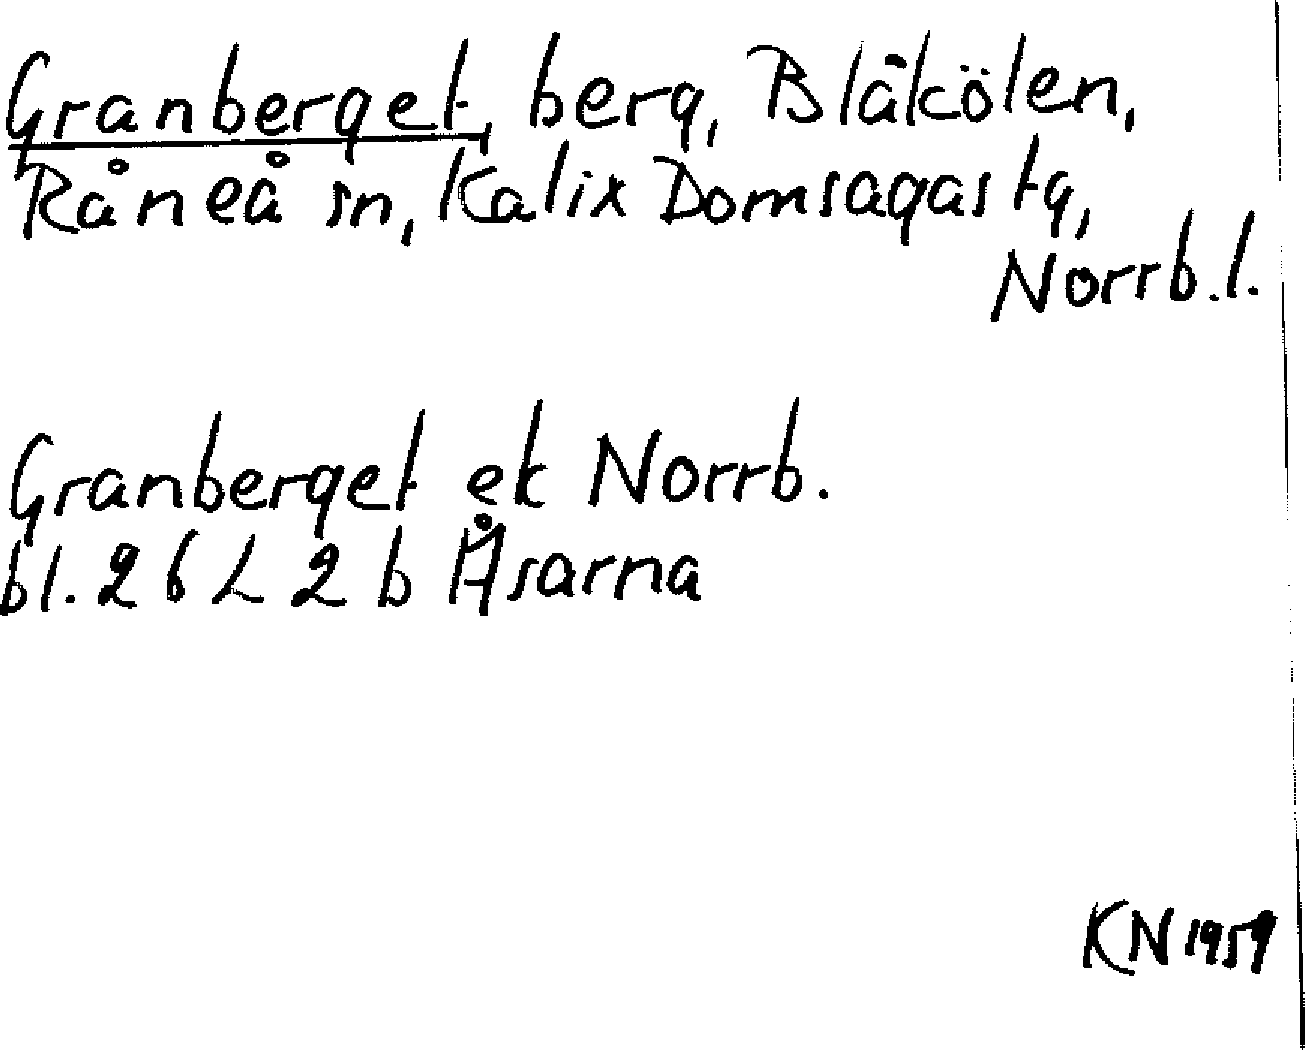 Granberget, berg, Blåkölen,
Råneå sn, Kalix Domsagas tg,
Norrb. l.
Granberget ek Norrb.
bl. 26 L 2 b Åsarna
KN 1959